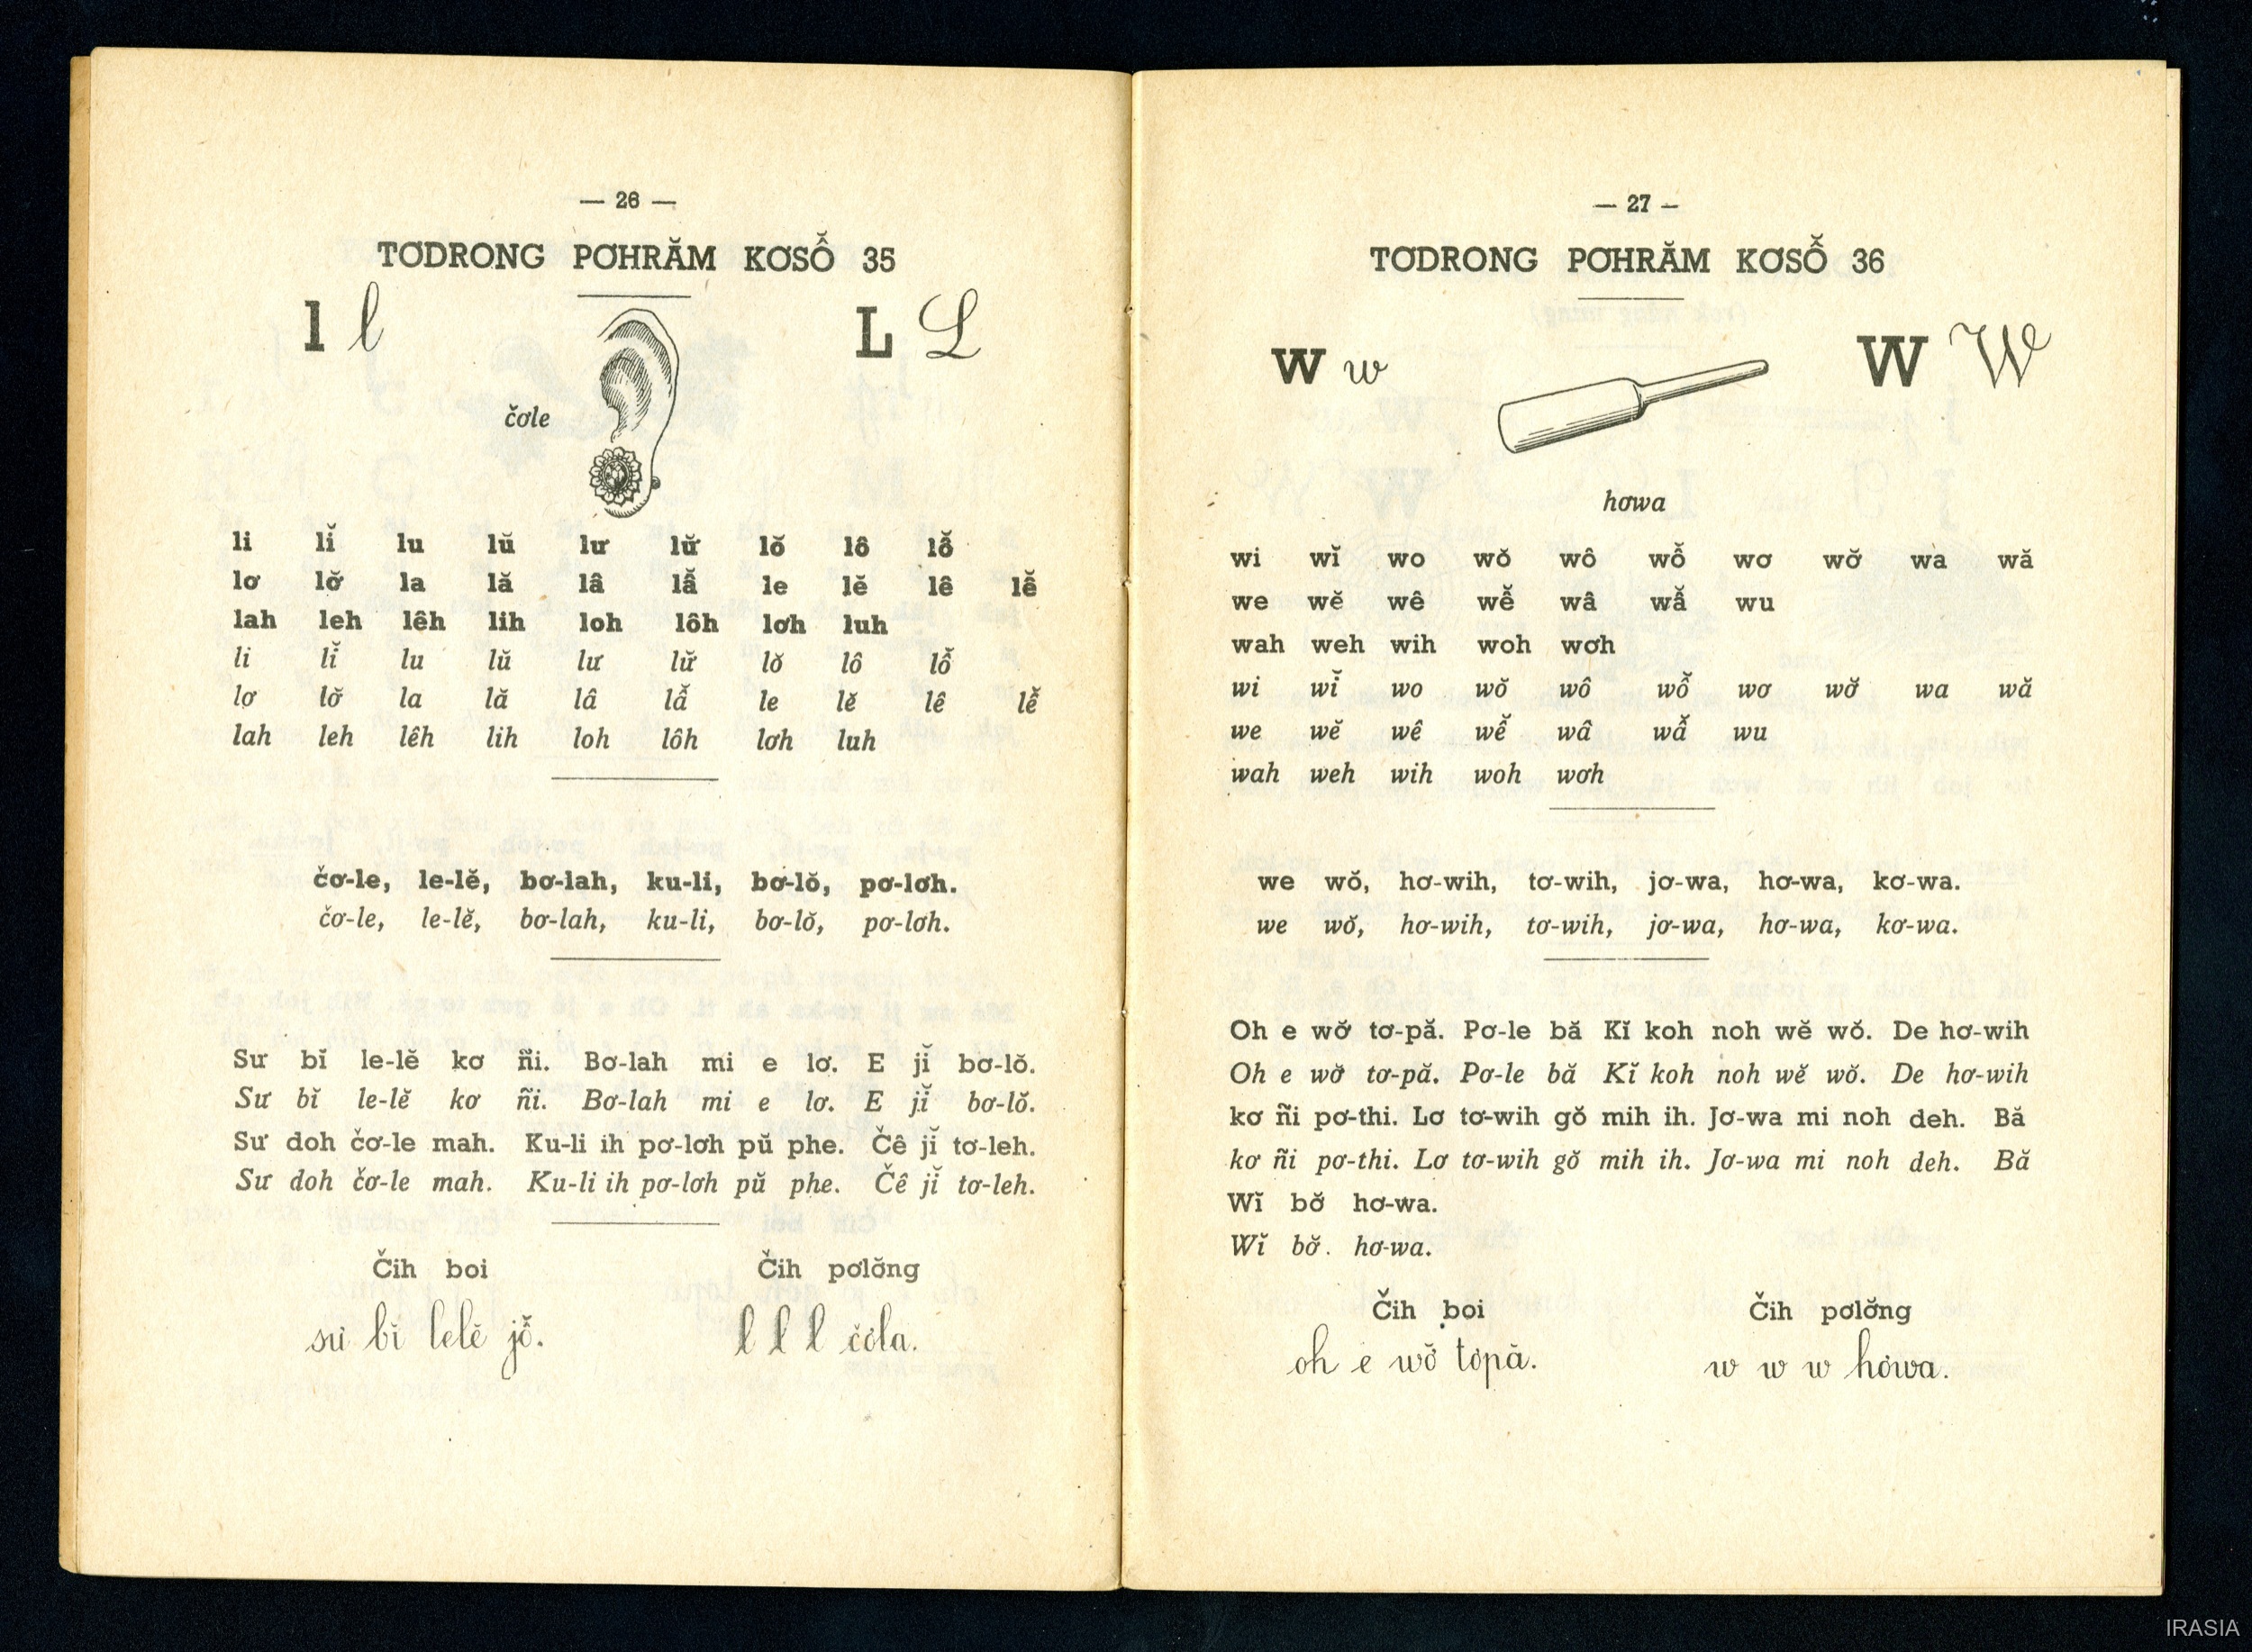 — 26 —
TƠDRONG PƠHRĂM KƠSÔ̆ 35
l l L L
čơle
li lĭ lu lŭ lư lư̆ lŏ lô lô̆
lơ lơ̆ la lă lâ lâ̆ le lĕ lê lê̆
lah leh lêh lih loh lôh lơh luh
li lĭ lu lŭ lư lư̆ lŏ lô lô̆
lơ lơ̆ la lă lâ lâ̆ le lĕ lê lê̆
lah leh lêh lih loh lôh lơh luh
čơ-le, le-lĕ, bơ-lah, ku-li, bơ-lŏ, pơ-lơh.
čơ-le, le-lĕ, bơ-lah, ku-li, bơ-lŏ, pơ-lơh.
Sư bĭ le-lĕ kơ ñi. Bơ-lah mi e lơ. E jĭ bơ-lŏ.
Sư bĭ le-lĕ kơ ñi. Bơ-lah mi e lơ. E jĭ bơ-lŏ.
Sư doh čơ-le mah. Ku-li ih pơ-lơh pŭ phe. Čê jĭ tơ-leh.
Sư doh čơ-le mah. Ku-li ih pơ-lơh pŭ phe. Čê jĭ tơ-leh.
Čih boi Čih pơlơ̆ng
sư bĭ lelĕ jô̆. l l l čơla.
— 27 —
TƠDRONG PƠHRĂM KƠSÔ̆ 36
w w W W
hơwa
wi wĭ wo wŏ wô wô̆ wơ wơ̆ wa wă
we wĕ wê wê̆ wâ wâ̆ wu
wah weh wih woh wơh
wi wĭ wo wŏ wô wô̆ wơ wơ̆ wa wă
we wĕ wê wê̆ wâ wâ̆ wu
wah weh wih woh wơh
we wŏ, hơ-wih, tơ-wih, jơ-wa, hơ-wa, kơ-wa.
we wŏ, hơ-wih, tơ-wih, jơ-wa, hơ-wa, kơ-wa.
Oh e wơ̆ tơ-pă. Pơ-le bă Kĭ koh noh wĕ wŏ. De hơ-wih
Oh e wơ̆ tơ-pă. Pơ-le bă Kĭ koh noh wĕ wŏ. De hơ-wih
kơ ñi pơ-thi. Lơ tơ-wih gŏ mih ih. Jơ-wa mi noh deh. Bă
kơ ñi pơ-thi. Lơ tơ-wih gŏ mih ih. Jơ-wa mi noh deh. Bă
Wĭ bơ̆ hơ-wa.
Wĭ bơ̆. hơ-wa.
Čih boi Čih pơlơ̆ng
oh e wơ̆ tơpă. w w w hơwa.
IRASIA